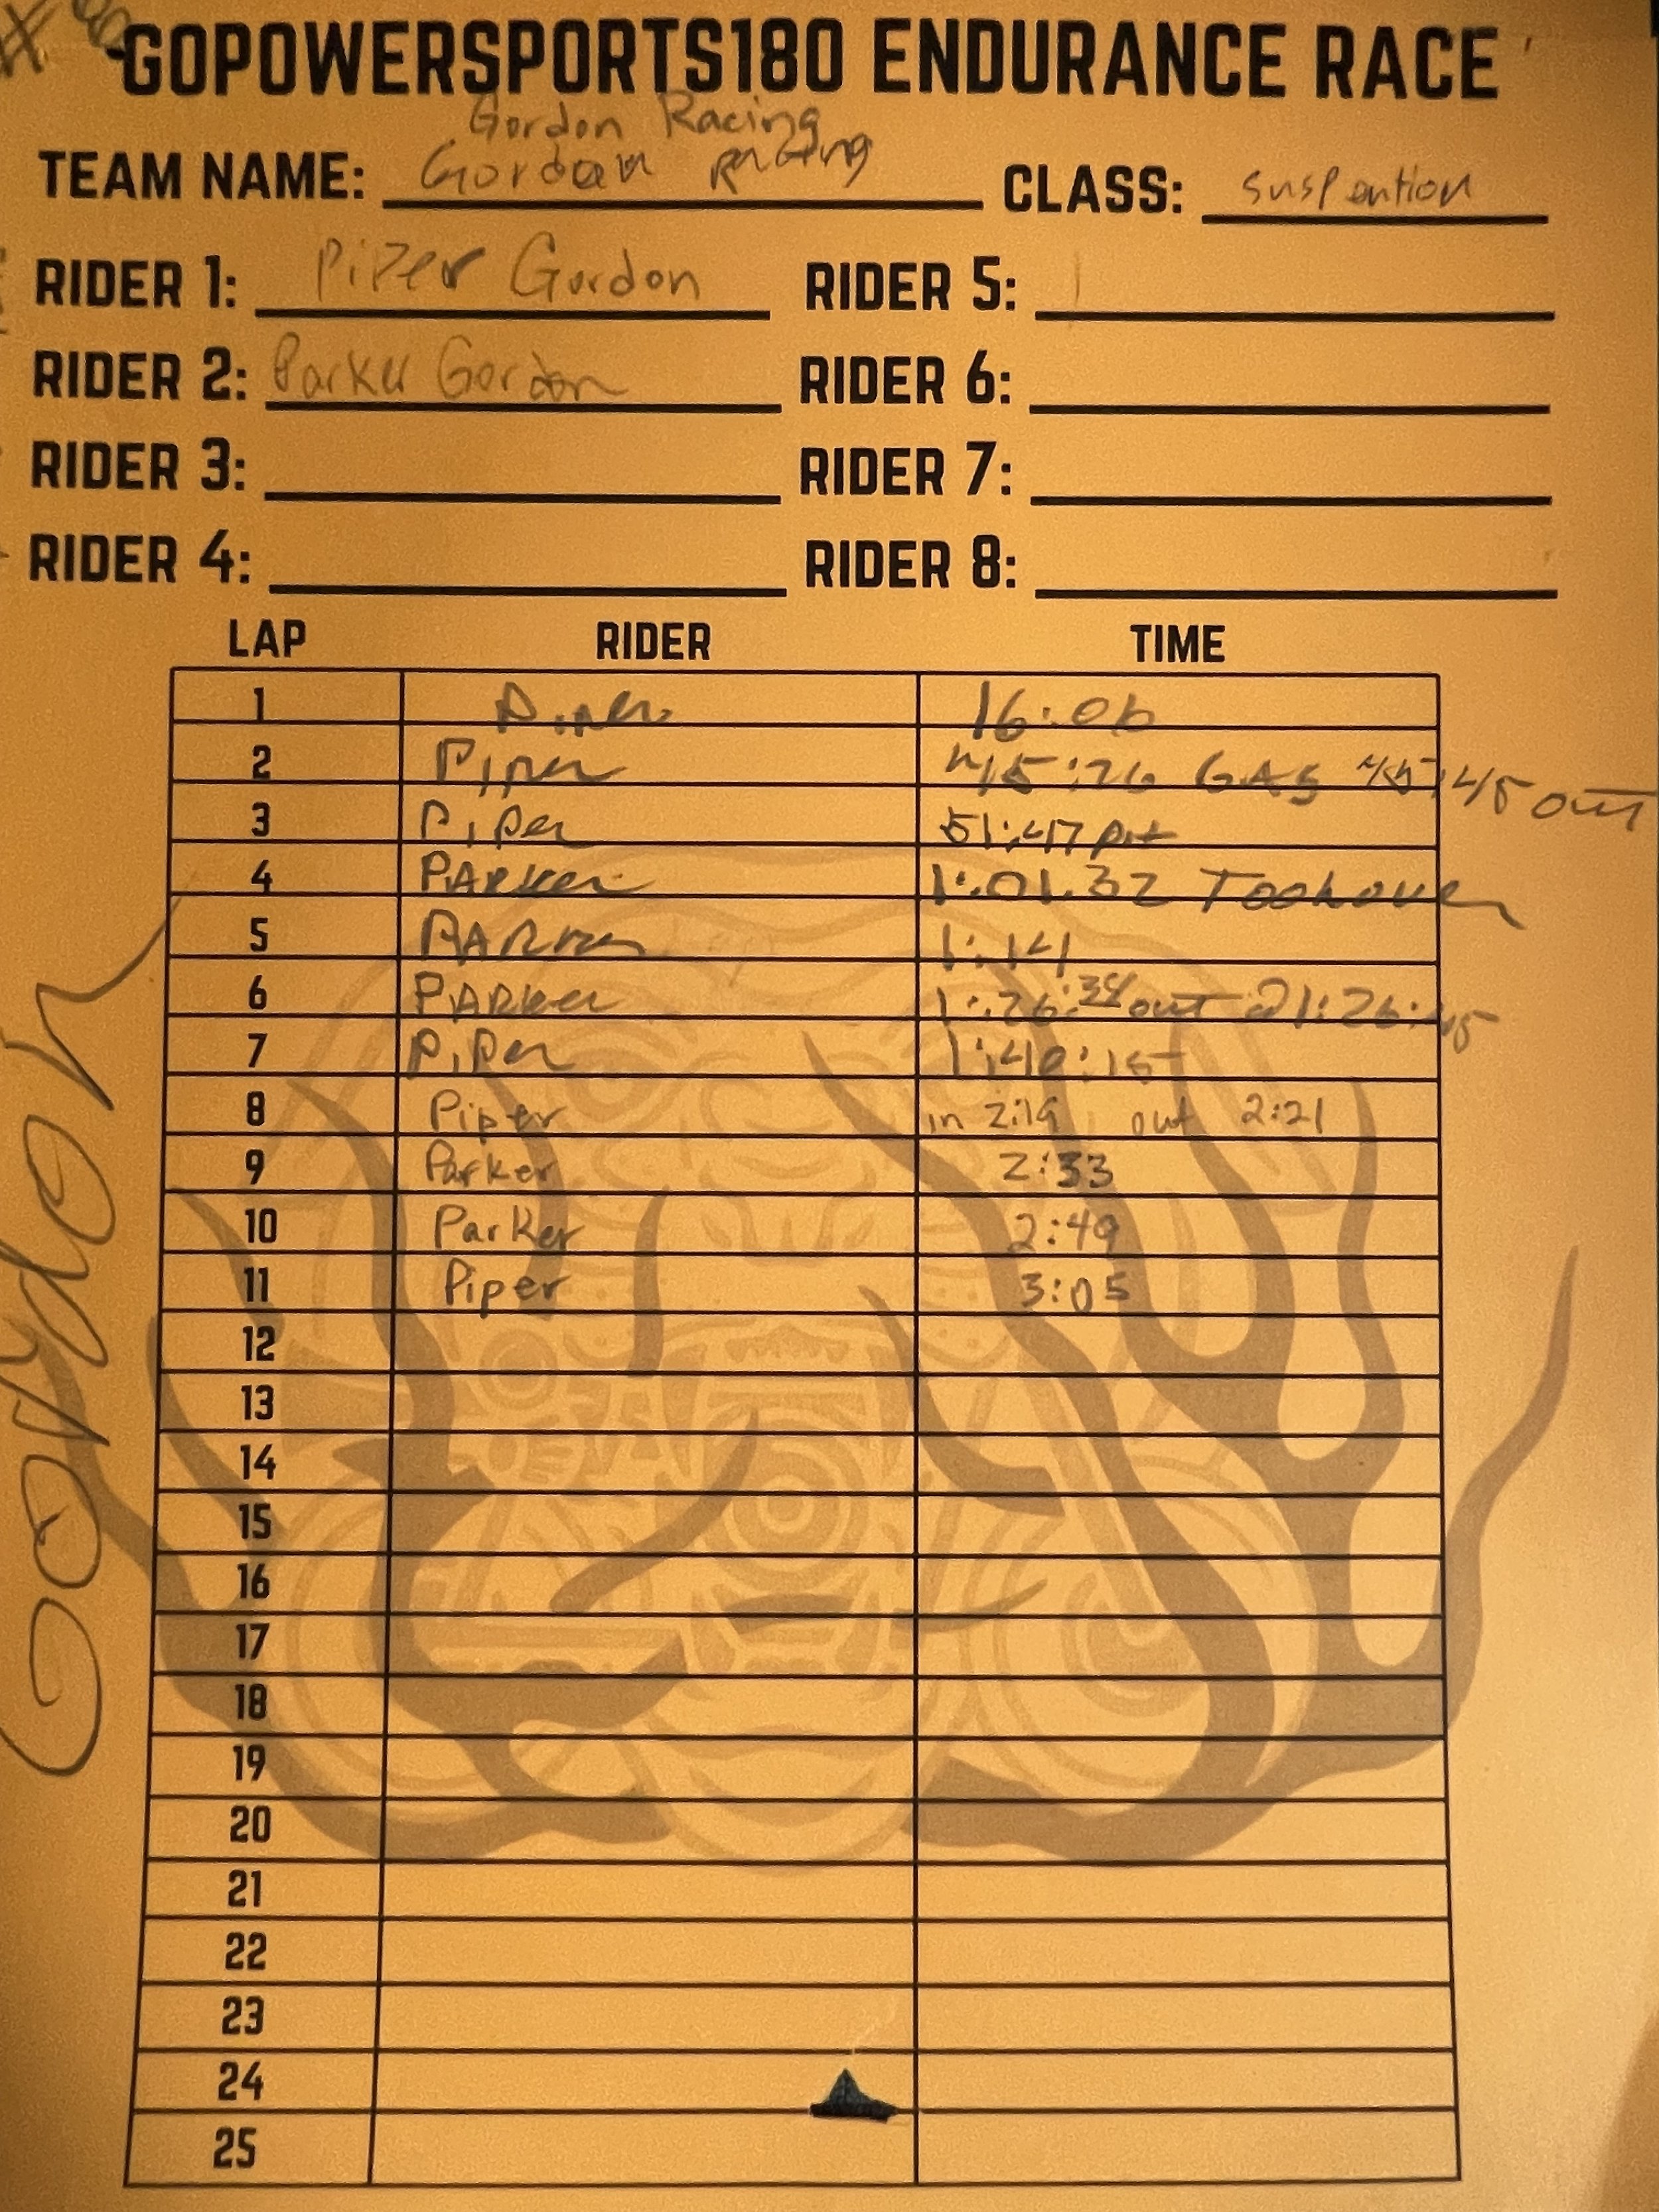 GOPOWERSPORTS180 ENDURANCE RACE
Gordon Racing
TEAM NAME: Gordan Racing CLASS: suspention
RIDER 1: Piper Gordon RIDER 5:
RIDER 2: Parker Gordon RIDER 6:
RIDER 3: RIDER 7:
RIDER 4: RIDER 8:
LAP RIDER TIME
1 Piper 16:06
2 Piper GAS out
3 Piper 51:47 pit
4 PARKer 1:01.32 Took over
5 PARker 1:14
6 PARker 1:26:38 out @ 1:26:45
7 Piper 1:40:15
8 Piper in 2:19 out 2:21
9 Parker 2:33
10 Parker 2:49
11 Piper 3:05
12
13
14
15
16
17
18
19
20
21
22
23
24
25
Gordon